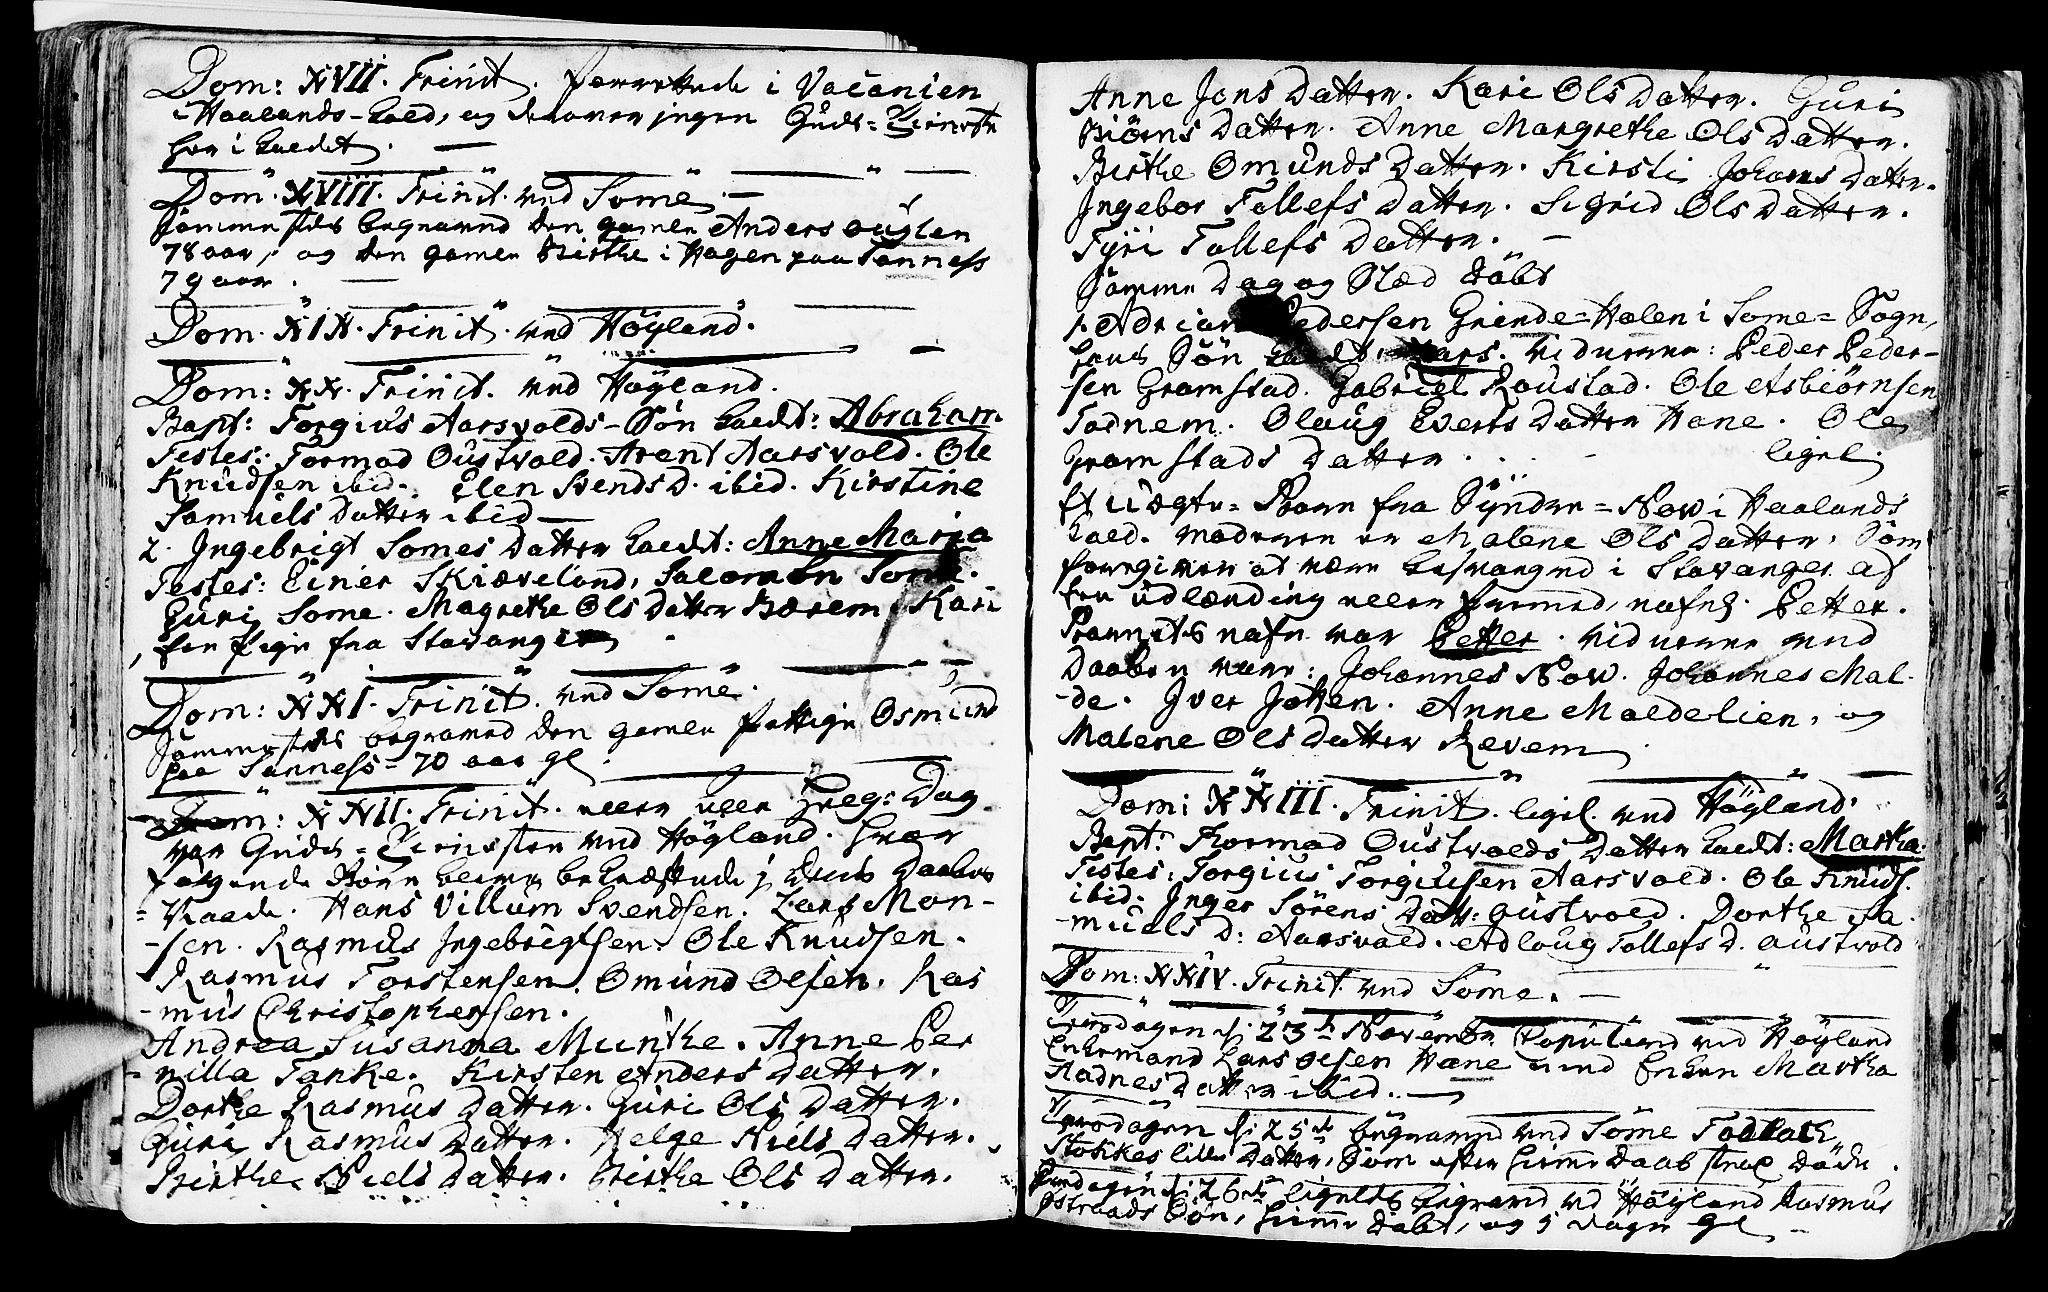 Dom: XVII. Trinit. forrettede i Vacanien
i Haalands-Kald, og derover jngen Guds=Tieneste
her i Kaldet. —
Dom. XVIII. Trinit. ved Some. —
Sammestds begraved den gamle Anders
78 aar, og den gamle Birthe i Hagen paa Sanness
79 aar. —
Dom. XIX. Trinit. ved Höyland.
Dom: XX. Trinit. ved Höyland.
Bapt: Torgius Aarsvolds-Sön kaldt: Abraham.
Testes: Tormod Oustvold. Arent Aarsvold. Ole
Knudsen ibid. Elen Svendsd. ibid. Kirstine
Samuels Datter ibid
2. Ingebrigt Somes Datter kaldt: Anne Maria
Testes: Einer Skiæveland, Salomon Some.
Guri Some. Magrethe Ols Datter Bærem. Kari
en Pige fra Stavanger
Dom: XXI. Trinit. ved Some.
Sammestds begraved den gamle fattige Osmund
paa Sanness - 70 aar gl.
Dom: XXII. Trinit. eller Dag
var Guds=Tienisten ved Höyland. hvor
fölgende Börn bleve bekræftede j deris Daabes
=Naade. Hans Villum Svendsen. Lars Mon-
-sen. Rasmus Jngebrigtsen. Ole Knudsen.
Rasmus Torstensen. Omund Olsen. Ras
-mus Christophersen.
Andrea Susanna Munthe. Anne Per
=nilla Tanke. Kirsten Anders Datter.
Dorthe Rasmus Datter. Guri Ols Datter.
Guri Rasmus Datter. Helge Niels Datter.
Birthe Niels Datter. Birthe Ols Datter.
Anne Jons Datter. Kari Ols Datter. Guri
Biörns Datter. Anne Margrethe Ols Datter.
Birthe Omunds Datter. Kirsti Johans Datter.
Jngebor Tollefs Datter. Sigrid Ols Datter.
Tyri Tollefs Datter. —
Samme Dag og Stæd döbt
1. Adrian Pedersen Grinde=Halen i Some=Sogn,
hans Sön kaldt: Lars. Vidnerne: Peder Peder-
sen Gramstad. Gabriel Roustad. Ole Asbiörnsen
Todnem. Oloug Everts Datter Hane. Ole
Gramstads Datter.
ligel.
Et uægte=Barn fra Syndre=Now i Haalands
Kald. Moderen er Malene Ols Datter, Som
foregiver at være besvangred i Stavanger af
en udlænding eller fremed, nafnl. Petter.
Barnets nafn var Petter. Vidnerne ved
Daaben vare: Johannes Now. Johannes Mal-
-de. Jver Jotten. Anne Maldelien, og
Malene Ols Datter Revem
Dom: XXIII. Trinit. ligel. ved Höyland.
Bapt: Thormod Oustvolds Datter kaldt: Martha.
Testes: Torgius Torgiusen Aarsvold. Ole Knuds.
ibid: Jnger Sörens Datt: oustvold. Dorthe Sa-
-muels D: Aarsvold. Adloug Tollefs D. austvold
Dom: XXIV. Trinit. ved Some. —
d: 23de November Copulered ved Höyland
Enkemand Lars olsen Hane med Enken Martha
Aadnes Datter ibid. —
d: 25de begraved ved Some
Stokkes lille Datter, Som efter hieme Daab strax döde.
d: 26de ligeleds begraved ved Höyland Rasmus
Sön, hieme döbt, og 5 dage gl. —